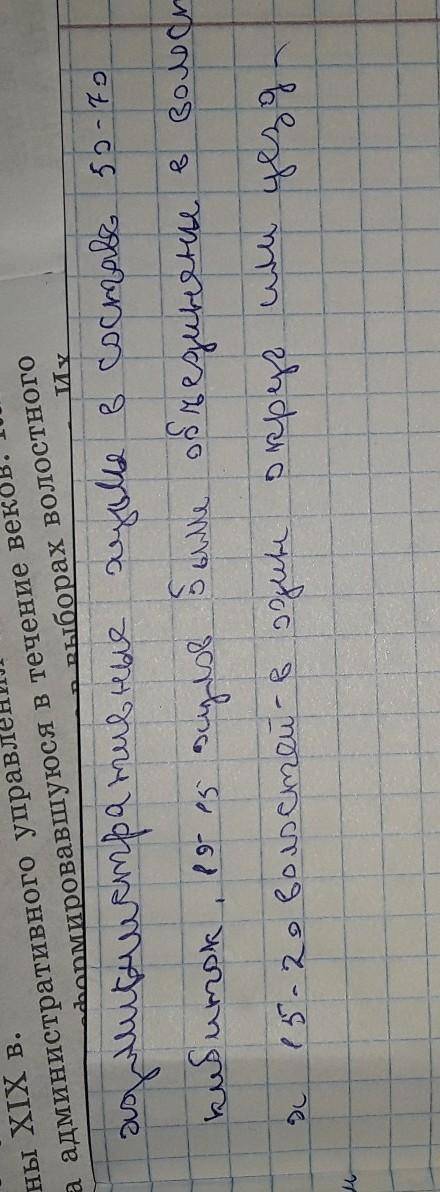 ны XIX в.
административного управления
сформировавшуюся в течение веков.
в выборах волостного
Их
административные аулы в составе 50-70
кибиток, 10-15 аулов были объединены в волост
а 15-20 волостей - в один округ или уезд